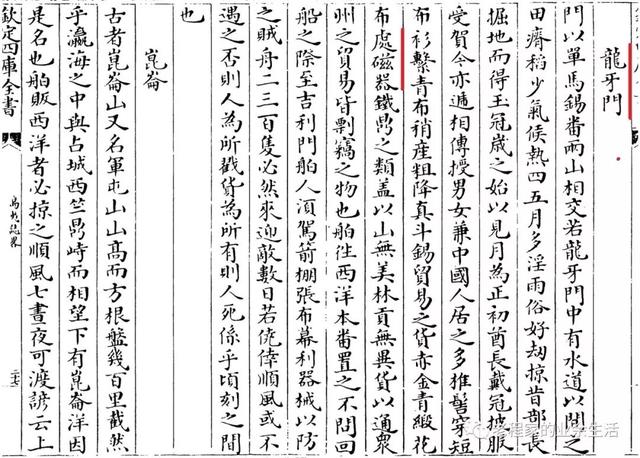 龍牙門
門以單馬錫番兩山相交若龍牙門中有水道以間之
田瘠稻少氣候熱四五月多淫雨俗好劫掠昔部長
掘地而得玉冠歲之始以見月為正初酋長戴冠披服
受賀今亦遞相傳授男女兼中國人居之多椎髻穿短
布衫繫青布稍產粗降真斗錫貿易之貨赤金青緞花
布處磁器鐵鼎之類蓋以山無美林貢無異貨以通衆
州之貿易皆剽竊之物也舶往西洋本番置之不問回
船之際至吉利門舶人須駕箭棚張布幕利器械以防
之賊舟二三百隻必然來迎敵數日若僥倖順風或不
遇之否則人為所戮貨為所有則人死係乎頃刻之間
也
崑崙
古者崑崙山又名軍屯山山高而方根盤幾百里截然
乎瀛海之中與占城西竺鼎峙而相望下有崑崙洋因
是名也舶販西洋者必掠之順風七晝夜可渡諺云上
欽定四庫全書
島夷誌畧
二七